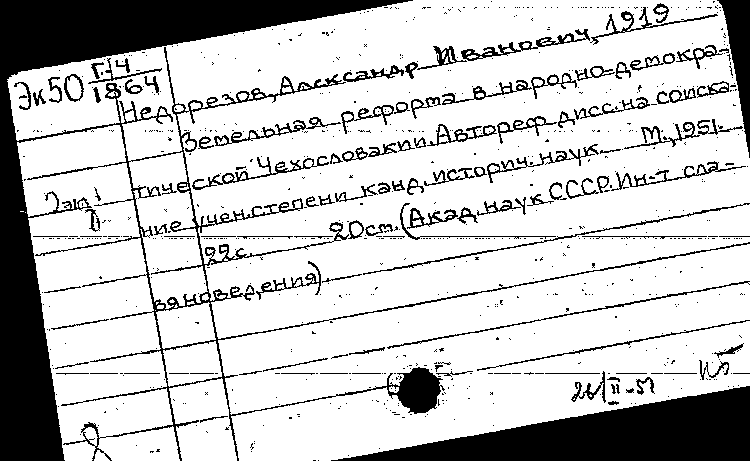 Эк50 Г-14
1864
Недорезов, Александр Иванович, 1919
Земельная реформа в народно-демокра-
тической Чехословакии. Автореф. дисс. на соиска-
ние учен. степени канд. историч. наук. М., 1951.
22с. 20см. (Акад. наук СССР. Ин-т сла-
вяноведения).
2 экз
26/II-51